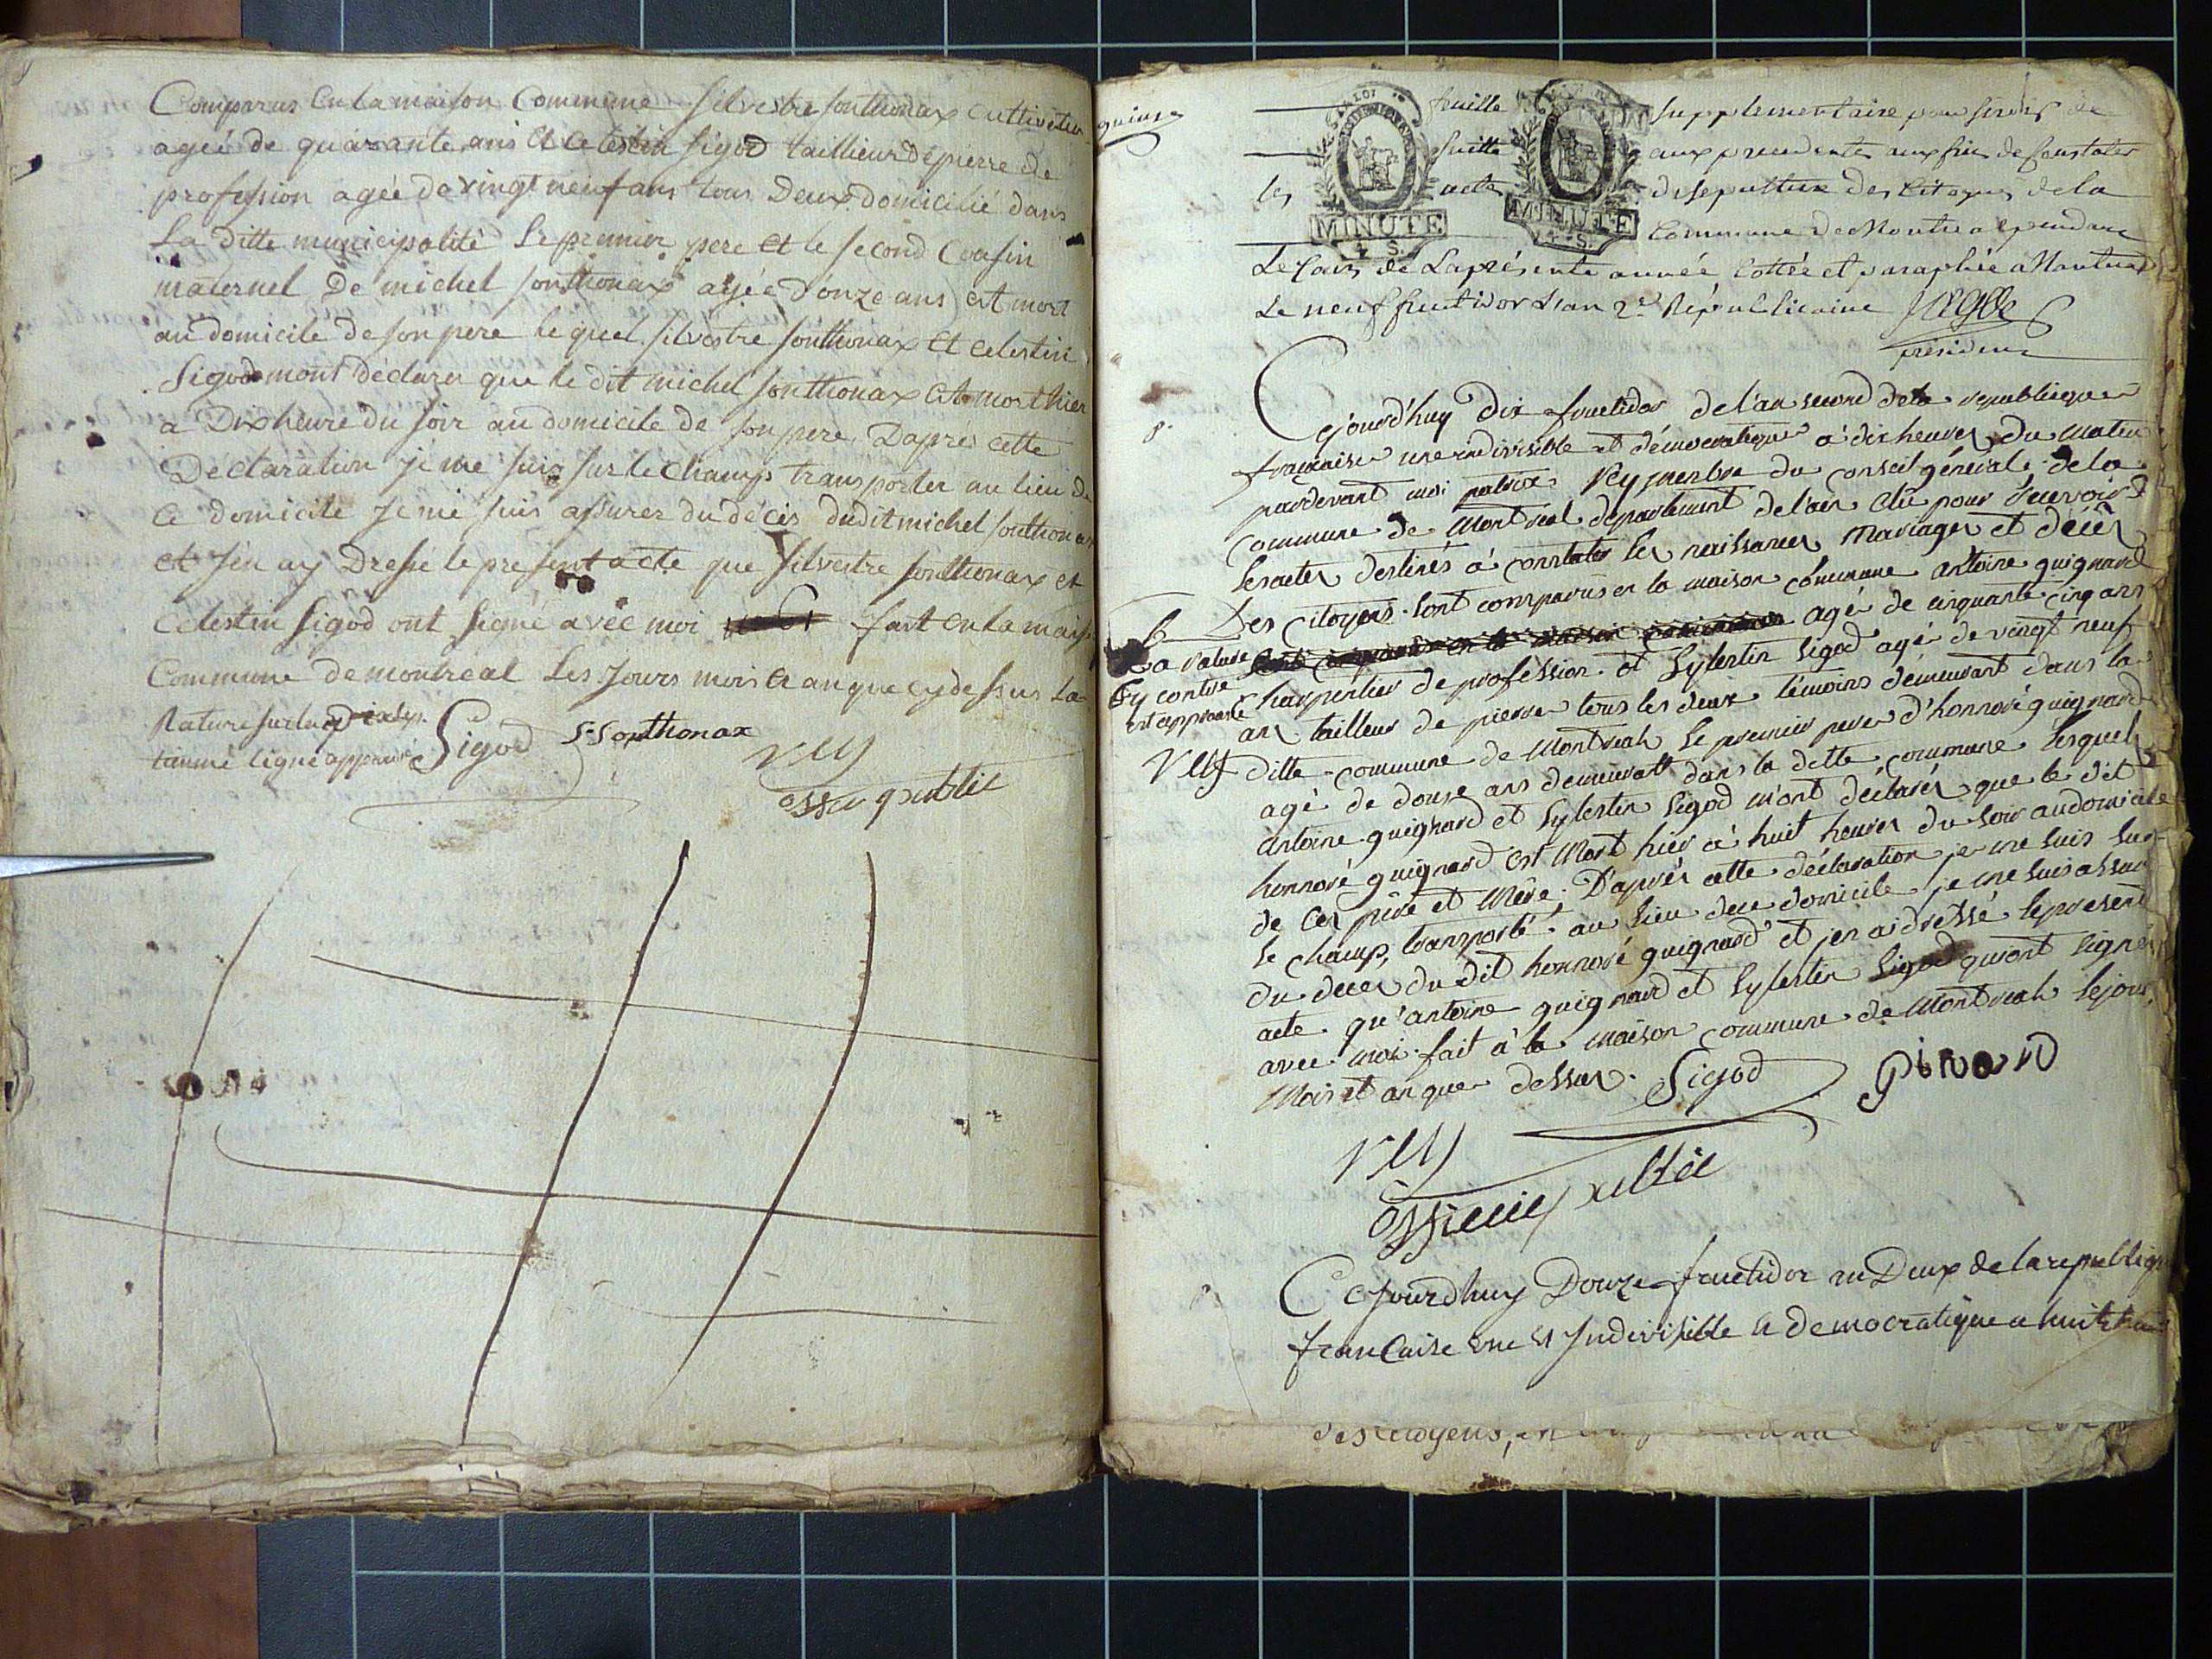 Comparus en la maison Commune silvestre sonthonax cultivateur
ageé de quarante ans et celestin sigod taillieur de pierre de
profession ageé de vingt neuf ans tous Deux domicilié dans
La ditte municipalité Le premier pere et le second Cousin
maternel De michel sonthonax ageé d'onze ans est mort
au domicile de son pere le quel silvestre sonthonax et celestin
Sigod mont déclarer que le dit michel sonthonax est mort hier
a Dix heure du soir au domicile de son pere. D'apres cette
Déclaration je me suis sur le Champs transporter au lieu de
ce domicile je me suis assurer du décès du dit michel sonthonax
et j'en ay Dressé le present acte que silvestre sonthonax et
Celestin sigod ont signé avec moi fait en la maison
Commune de montreal Les Jours mois et an que cy dessus La
Rature sur la
ligne approuvé Sigod S Sonthonax
Rey
offer public
quinze
feuille supplementaire pour servir de
suitte aux precedentes aux fins de Constater
les acte de sepulture des Citoyens de la
Commune de Montreal pendant
MINUTE
4 S.
MINUTE
4 S.
Le Cours de La présente année Cottée et paraphée a Nantua
Le neuf fructidor L'an 2e Républicaine
président
8.
Cejourd'huy dix fructidor de l'an second de la republique
française une indivisible et démocratique à dix heures du matin
pardevant moi patrix Rey membre du conseil générale de la
commune de Montreal département de l'ain élu pour recevoir
les actes destinés à constater les naissances Mariages et décès
Des Citoyens. sont comparus en la maison commune antoine guignard
agé de cinquante cinq ans
La rature
cy contre
est approuvé
Rey
charpentier de profession et sylestin sigod agé de vingt neuf
ans tailleur de pierre tous les deux témoins demeurant dans la
ditte commune de Montreal le premier pere d'honnoré guignard
agé de douse ans demeurant dans la ditte commune lesquels
antoine guignard et sylestin sigod m'ont déclarés que le dit
honnoré guignard est Mort hier à huit heures du soir au domicile
de ces père et Mère; D'après cette déclaration je me suis sur
le champ, transporté au lieu de ce domicile je me suis assuré
du deces du dit honnoré guignard et j'en ai dressé le present
acte qu'antoine guignard et sylestin sigod qui ont signés
avec moi fait à la maison commune de Montreal le jour,
Mois et an que dessus. Sigod ginard
Rey
officier public
Cejourd'huy Douze fructidor an Deux de la republique
francaise une et Indivisible et democratique a huit heure
des citoyens,